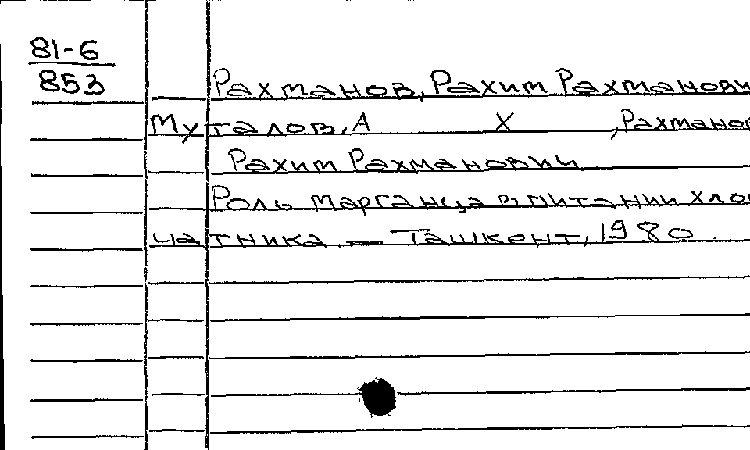 81-6
853
Рахманов, Рахим Рахманови
Муталов, А Х , Рахманов
Рахим Рахманович
Роль марганца в питании хлоп
чатника. — Ташкент, 1980.